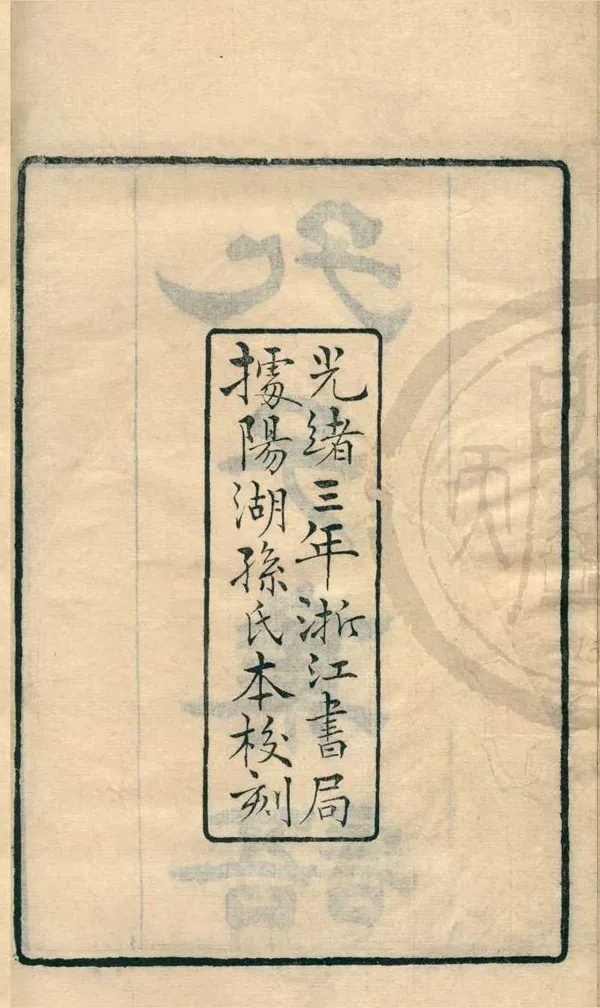 光緒三年浙江書局
據陽湖孫氏本校刻